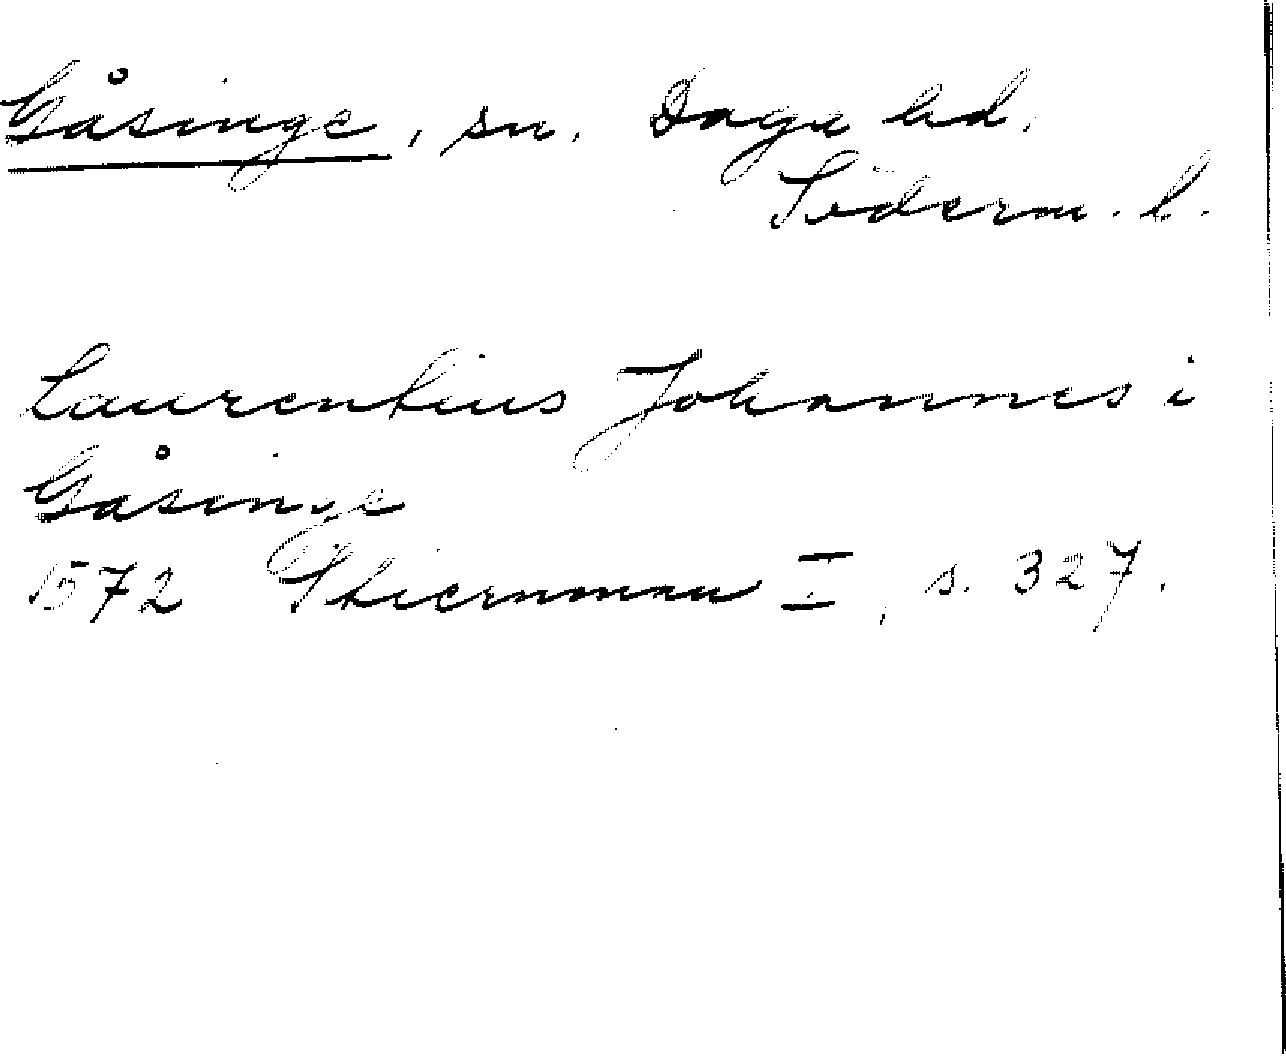 Gåsinge, sn. Daga hd.
Söderm. l.
Laurentius Johannes i
Gåsinge
1572 Stiernman I, s. 327.